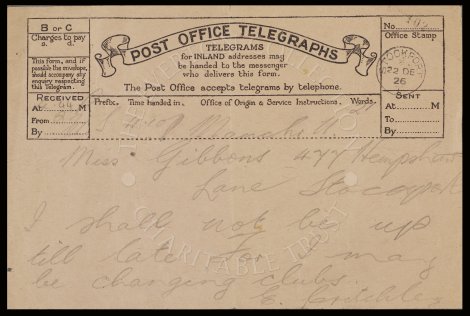 B or C
Charges to pay
s. d.
This form, and if
possible the envelope,
should accompany any
enquiry respecting
this Telegram.
RECEIVED
At M
From
By
POST OFFICE TELEGRAPHS
TELEGRAMS
for INLAND addresses may
be handed to the messenger
who delivers this form.
The Post Office accepts telegrams by telephone.
Prefix. Time handed in. Office of Origin & Service Instructions. Words.
No. 102
Office Stamp
STOCKPORT
22 DE
26
SENT
At M
To
By
Miss Gibbons 477 Hempshaw
Lane Stockport
I shall not be up
till late for I may
be changing clubs.
E. Critchley
CHARITABLE TRUST